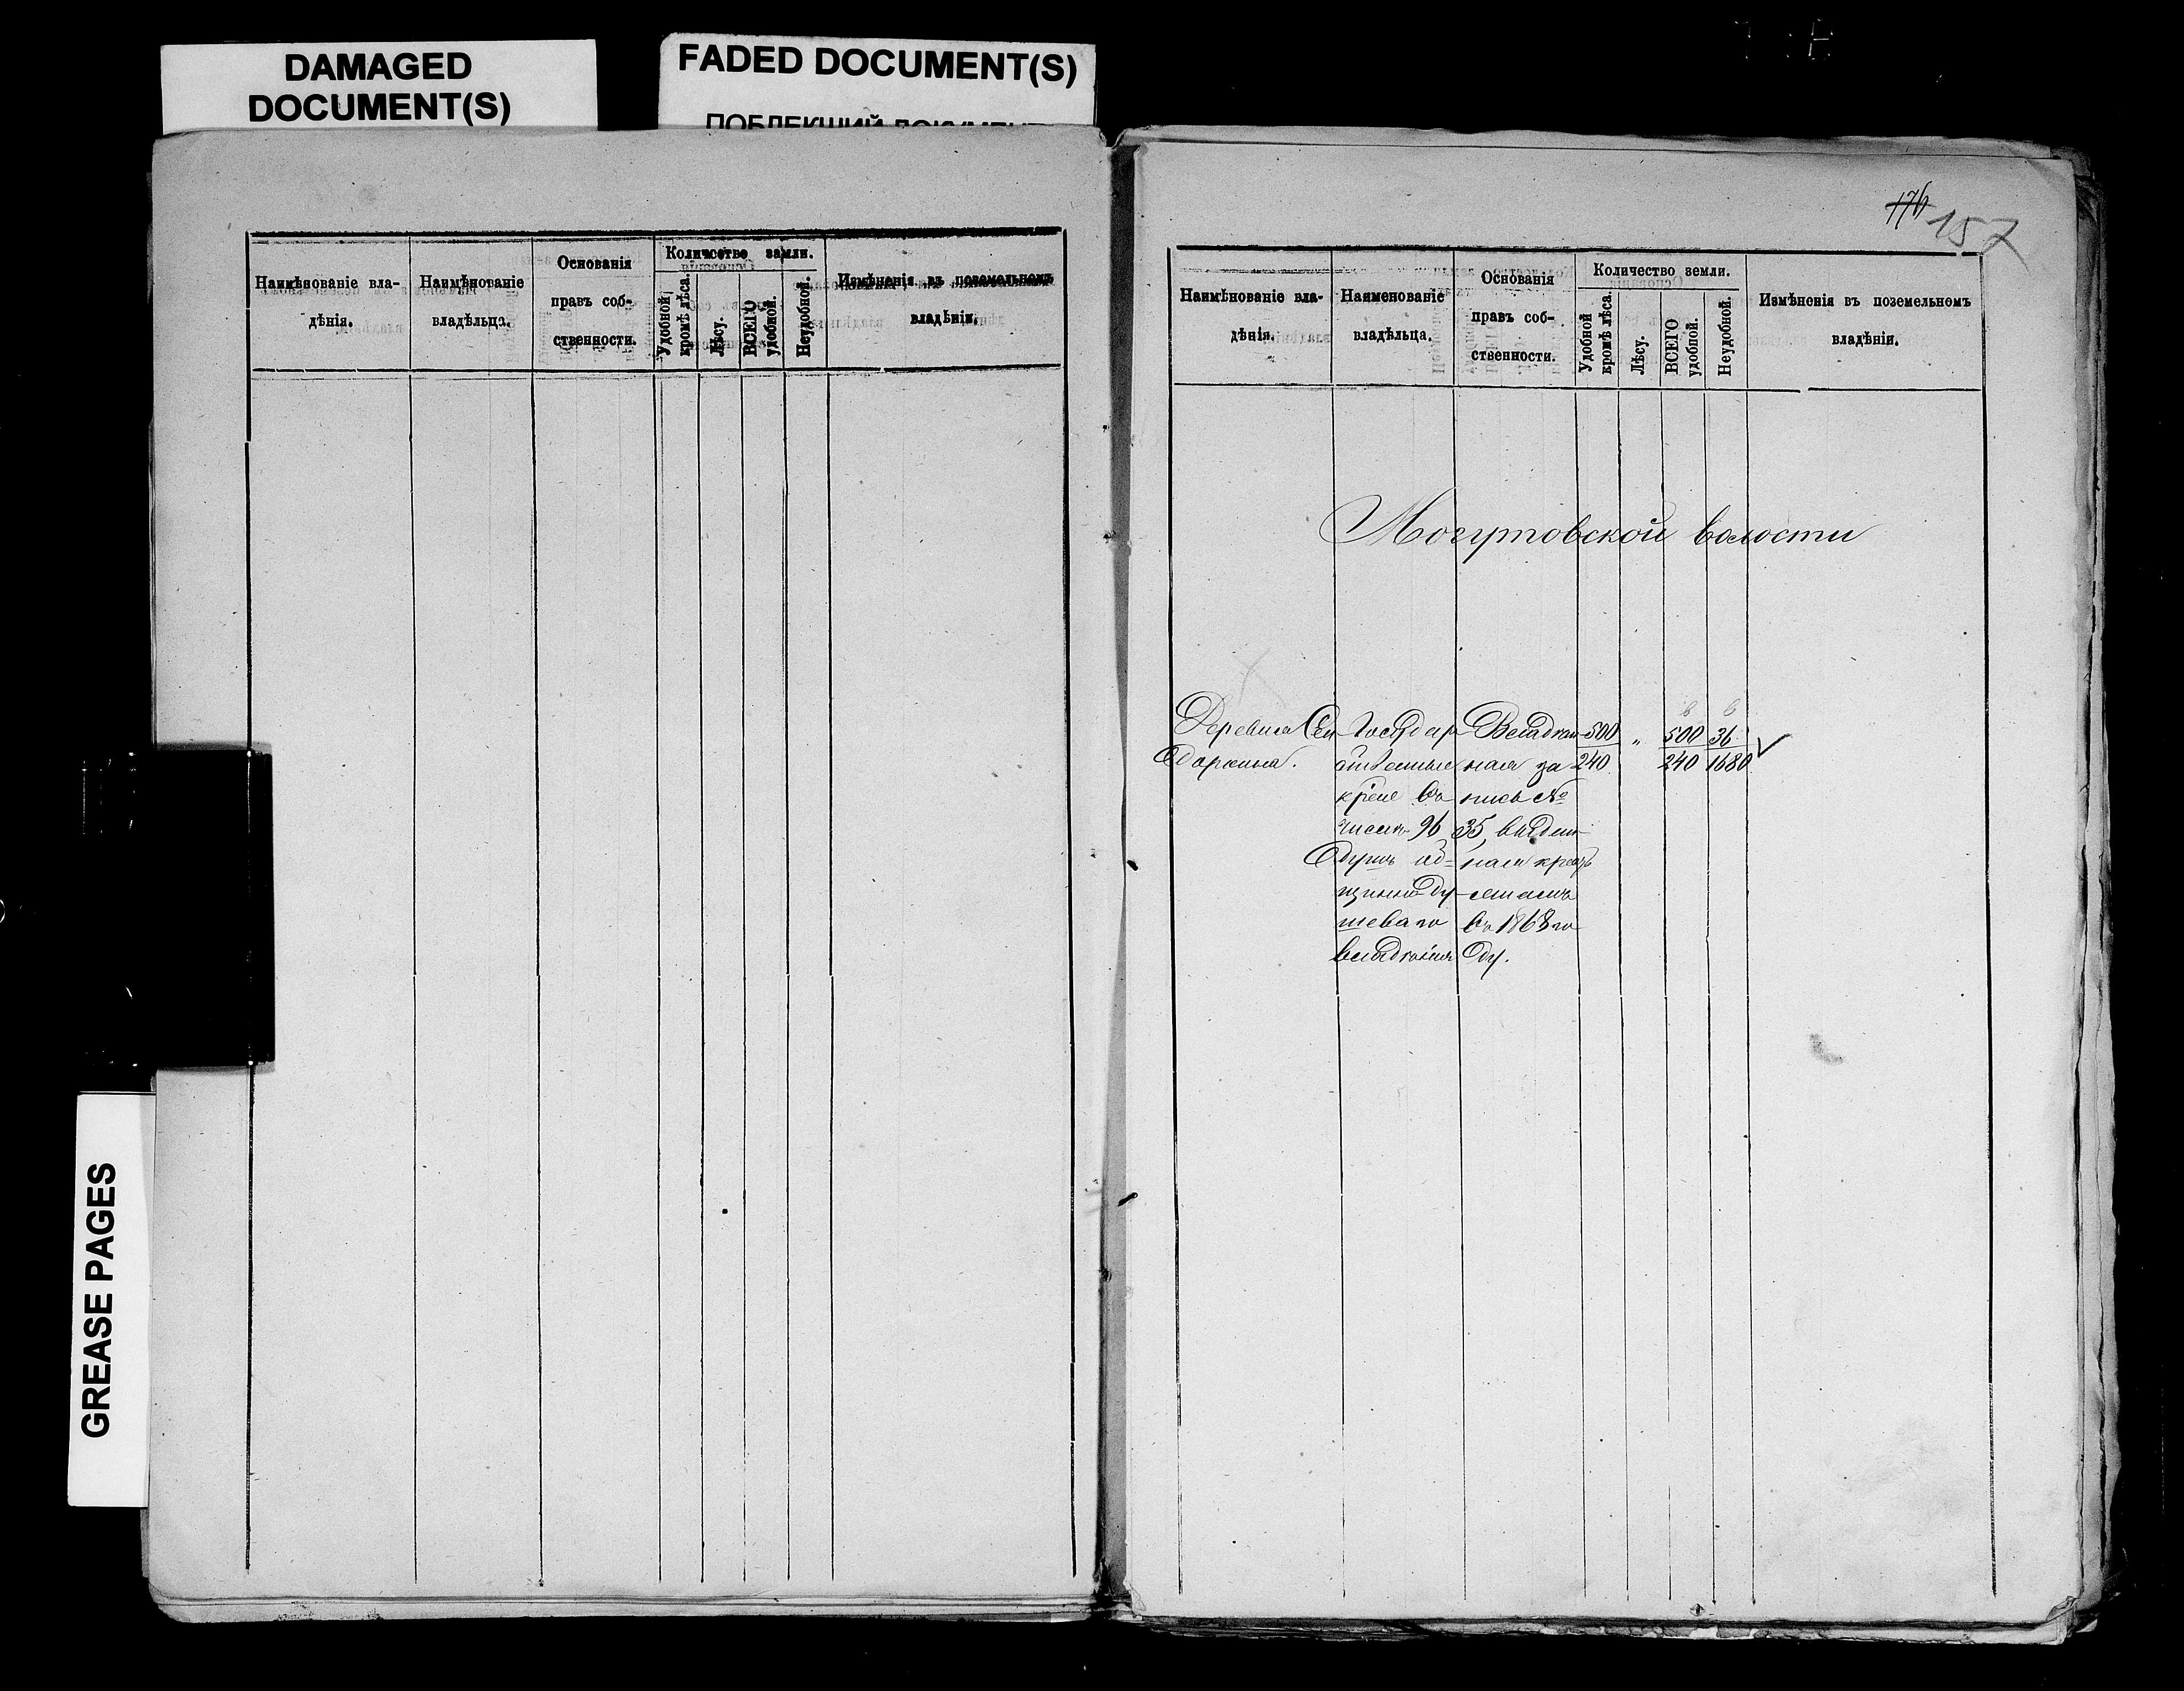 DAMAGED
DOCUMENT(S)
FADED DOCUMENT(S)
ПОБЛЕКШИЙ ДОКУМЕНТ
GREASE PAGES
Наимѣнованіе вла-
дѣнія.
Наимѣнованіе
владѣльца.
Основанія
правъ соб-
ственности.
Количество земли.
Удобной
кромѣ лѣса.
Лѣсу.
ВСЕГО
удобной.
Неудобной.
Измѣненія въ поземельномъ
владѣніи.
176
157
Наимѣнованіе вла-
дѣнія.
Наименованіе
владѣльца.
Основанія
правъ соб-
ственности.
Количество земли.
Удобной
кромѣ лѣса.
Лѣсу.
ВСЕГО
удобной.
Неудобной.
Измѣненія въ поземельномъ
владѣніи.
Могутовской волости
Деревня
Государ-
кр
числѣ 96
душъ об-
щинно ду-
шеваго
владѣнія
Владѣн-
ная за
пись №
35, выдан-
ная кресть
янамъ
въ 1868 го
ду.
500
240
"
500
240
36
1680